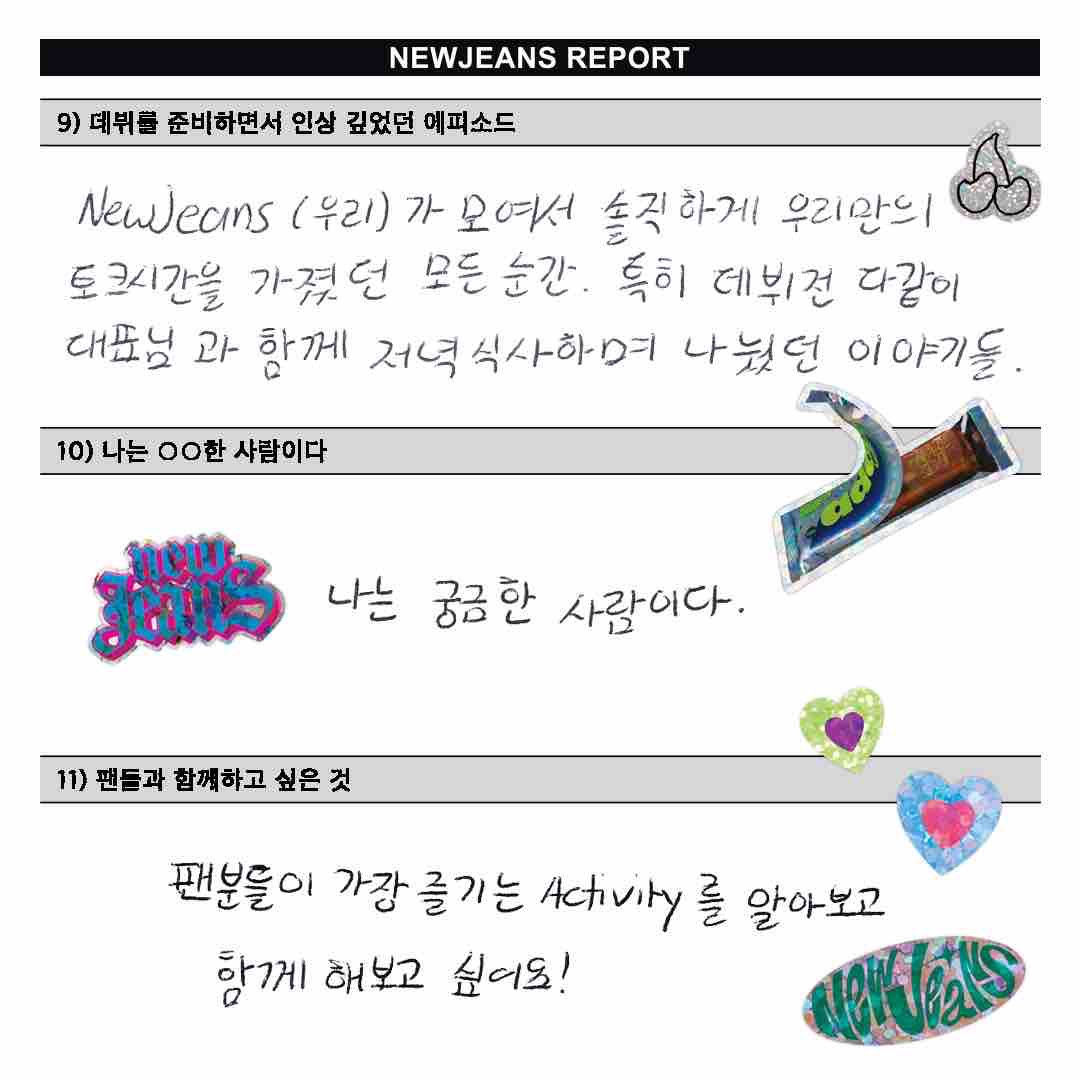 NEWJEANS REPORT
9) 데뷔를 준비하면서 인상 깊었던 에피소드
NewJeans (우리)가 모여서 솔직하게 우리만의
토크시간을 가졌던 모든 순간. 특히 데뷔전 다같이
대표님과 함께 저녁식사하며 나눴던 이야기들.
10) 나는 ○○한 사람이다
new
Jeans
나는 궁금한 사람이다.
11) 팬들과 함께하고 싶은 것
팬분들이 가장 즐기는 Activity를 알아보고
함께 해보고 싶어요!
NewJeans